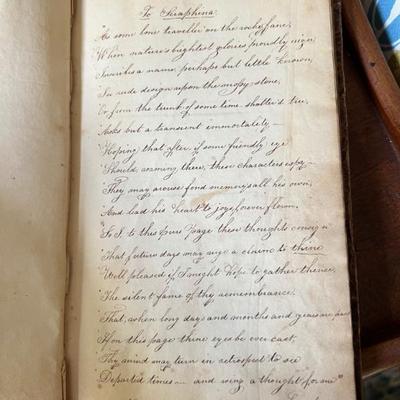 To Seraphina.
"As some lone traveller on the rocky fane,
"When nature's brightest glories proudly reign
"Inscribes a name, perhaps but little known,
"In rude design upon the mossy stone,
"Or from the trunk of some time-shatter'd tree,
"Asks but a transient immortality,—
"Hoping that after, if some friendly eye
"Should, roaming there, these characters espy—
"They may arouse fond memory all his own,
"And lead his heart to joys forever flown.
"So I to this pure page these thoughts consign
"That future days may urge a claim to thine
"Well pleased if I might hope to gather thence
"The silent fame of thy remembrance.
"That, when long days and months and years are past
"If on this page thine eyes be ever cast.
"Thy mind may turn in retrospect to see
"Departed times— and wing a thought for me"